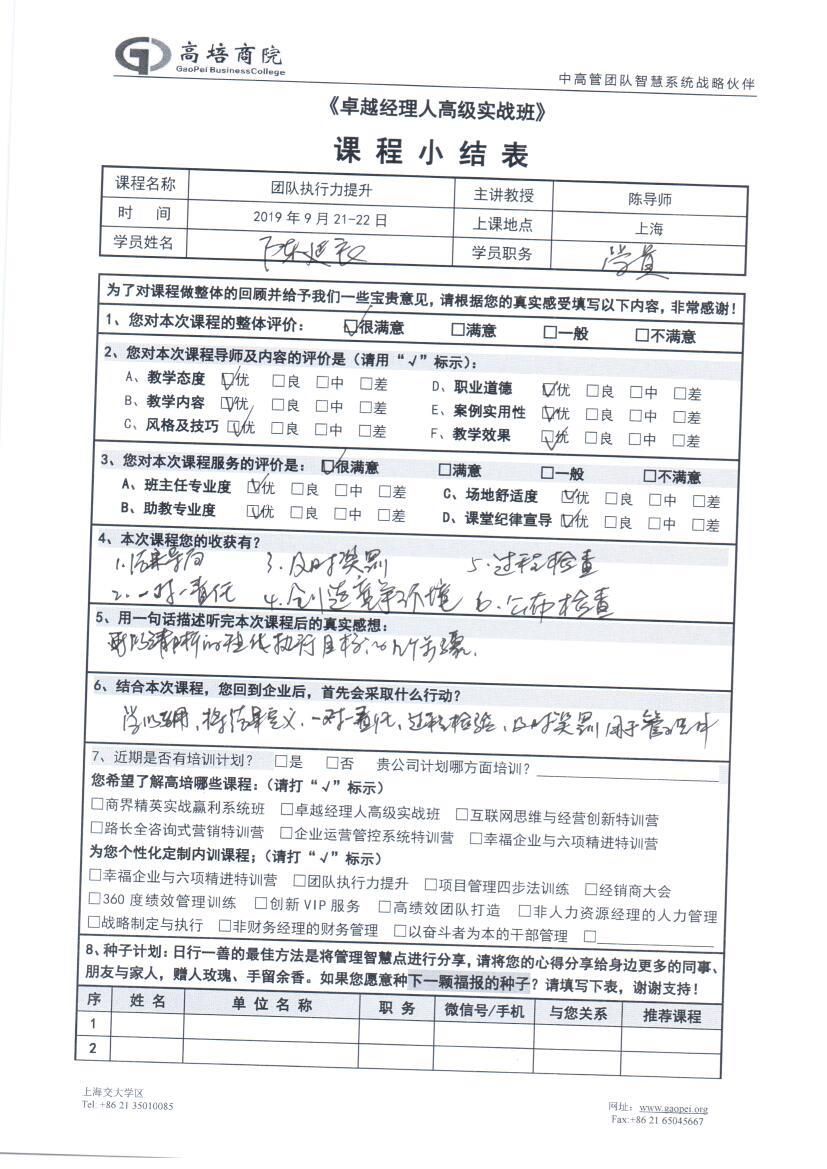 高培商院
GaoPei BusinessCollege
中高管团队智慧系统战略伙伴
《卓越经理人高级实战班》
课程小结表
课程名称 团队执行力提升 主讲教授 陈导师
时 间 2019年9月21-22日 上课地点 上海
学员姓名 陈建 学员职务 学员
为了对课程做整体的回顾并给予我们一些宝贵意见,请根据您的真实感受填写以下内容,非常感谢!
1、您对本次课程的整体评价: ☑很满意 □满意 □一般 □不满意
2、您对本次课程导师及内容的评价是(请用“√”标示):
A、教学态度 ☑优 □良 □中 □差 D、职业道德 ☑优 □良 □中 □差
B、教学内容 ☑优 □良 □中 □差 E、案例实用性 ☑优 □良 □中 □差
C、风格及技巧 ☑优 □良 □中 □差 F、教学效果 ☑优 □良 □中 □差
3、您对本次课程服务的评价是: ☑很满意 □满意 □一般 □不满意
A、班主任专业度 ☑优 □良 □中 □差 C、场地舒适度 ☑优 □良 □中 □差
B、助教专业度 ☑优 □良 □中 □差 D、课堂纪律宣导 ☑优 □良 □中 □差
4、本次课程您的收获有?
1.结果导向 3.及时奖罚 5.过程检查
2.一对一责任 4.创造竞争环境 6.公布检查
5、用一句话描述听完本次课程后的真实感想:
执行目标的几个步骤.
6、结合本次课程,您回到企业后,首先会采取什么行动?
学以致用,将结果定义,一对一责任,过程检验,及时奖罚用于管理中
7、近期是否有培训计划? □是 □否 贵公司计划哪方面培训?
您希望了解高培哪些课程:(请打“√”标示)
□商界精英实战赢利系统班 □卓越经理人高级实战班 □互联网思维与经营创新特训营
□路长全咨询式营销特训营 □企业运营管控系统特训营 □幸福企业与六项精进特训营
为您个性化定制内训课程;(请打“√”标示)
□幸福企业与六项精进特训营 □团队执行力提升 □项目管理四步法训练 □经销商大会
□360度绩效管理训练 □创新VIP服务 □高绩效团队打造 □非人力资源经理的人力管理
□战略制定与执行 □非财务经理的财务管理 □以奋斗者为本的干部管理 □
8、种子计划:日行一善的最佳方法是将管理智慧点进行分享,请将您的心得分享给身边更多的同事、
朋友与家人,赠人玫瑰、手留余香。如果您愿意种下一颗福报的种子?请填写下表,谢谢支持!
序 姓名 单位名称 职务 微信号/手机 与您关系 推荐课程
1
2
上海交大学区
Tel: +86 21 35010085
网址: www.gaopei.org
Fax:+86 21 65045667